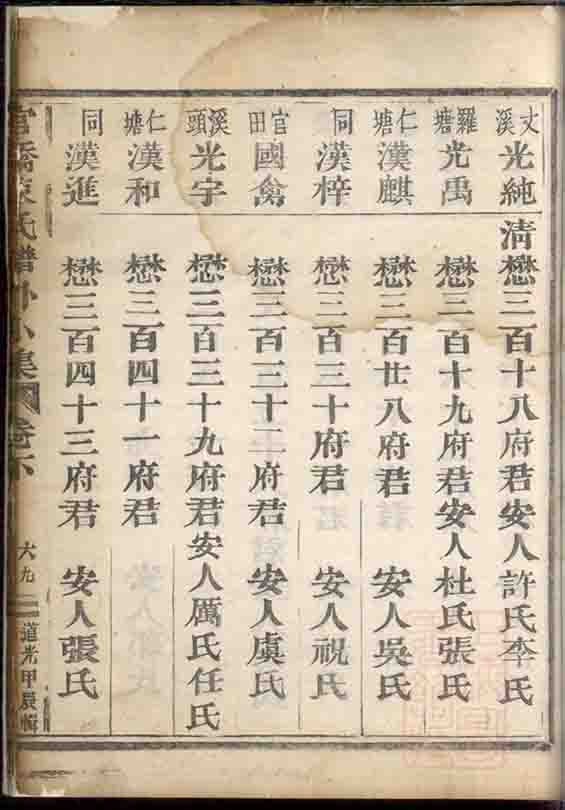 丈溪 光純 清懋三百十八府君安人許氏李氏
羅塘 光禹 懋三百十九府君安人杜氏張氏
仁塘 漢麒 懋三百廿八府君 安人吳氏
同 漢梓 懋三百三十府君 安人祝氏
官田 國禽 懋三百三十二府君 安人虞氏
溪頭 光宇 懋三百三十九府君安人厲氏任氏
仁塘 漢和 懋三百四十一府君
同 漢進 懋三百四十三府君 安人張氏
官橋 氏譜 集 卷下 六九 道光甲辰輯